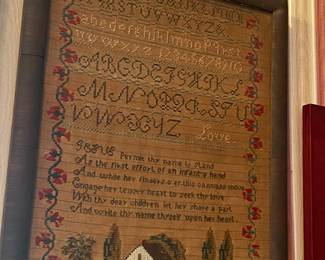 RSTUVWXYZ&
abcdefghijklmnopqrst
uvwxyz 12345678910
ABCDEFGHIJKL
MNOPQRSTU
VWXYZ Love
JESUS Permit thy name to stand
As the first effort of an infants hand
And while her fingers o er this canvass move
Engage her tender heart to seek thy love
With thy dear children let her share a part
And write thy name thyself upon her heart